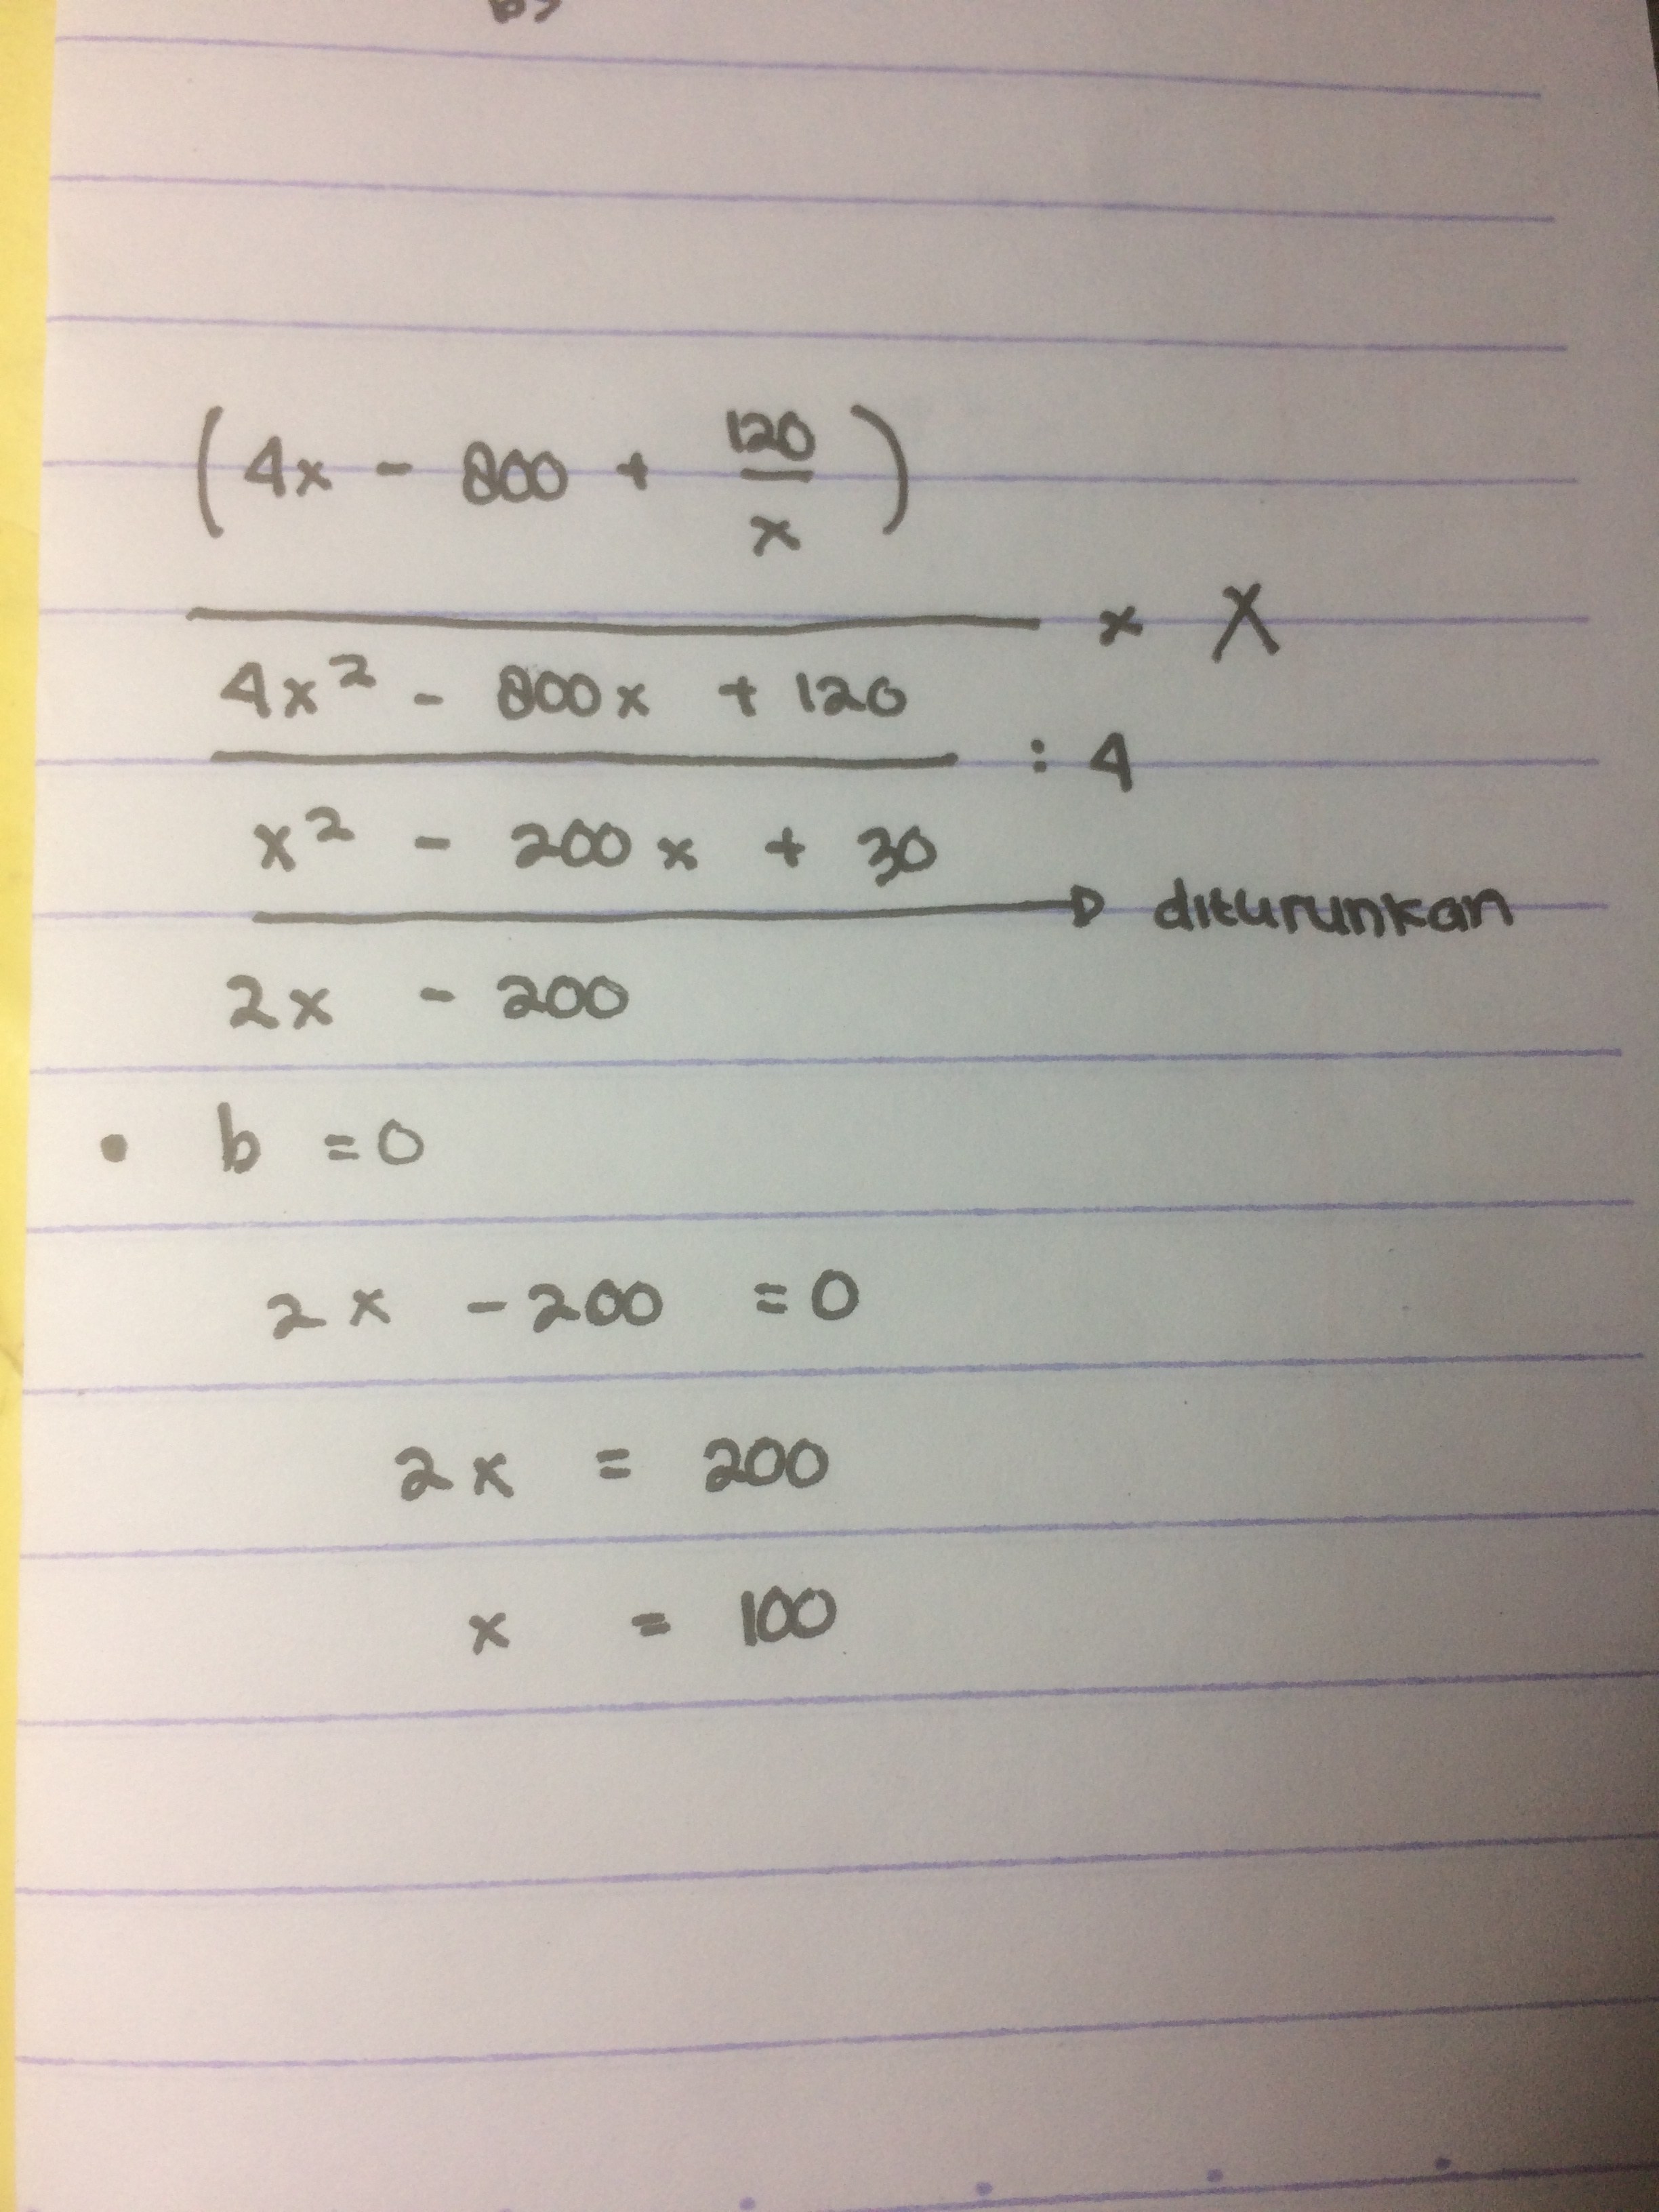 (4x - 800 + 120/x)
× X
4x² - 800x + 120
: 4
x² - 200x + 30
diturunkan
2x - 200
• b = 0
2x - 200 = 0
2x = 200
x = 100